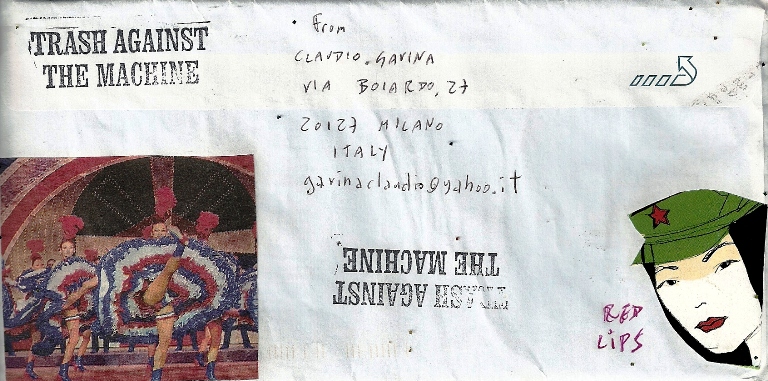 TRASH AGAINST
THE MACHINE
From
CLAUDIO. GAVINA
VIA BOIARDO, 27
20127 MILANO
ITALY
gavinaclaudio@yahoo.it
TRASH AGAINST
THE MACHINE
RED
LIPS